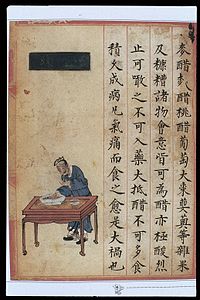 麥醋麩醋桃醋葡萄大棗蘡薁等雜果
及糠糟諸物會意皆可為醋亦極酸烈
止可啖之不可入藥大抵醋不可多食
積久成病凡氣痛而食之愈是大禍也